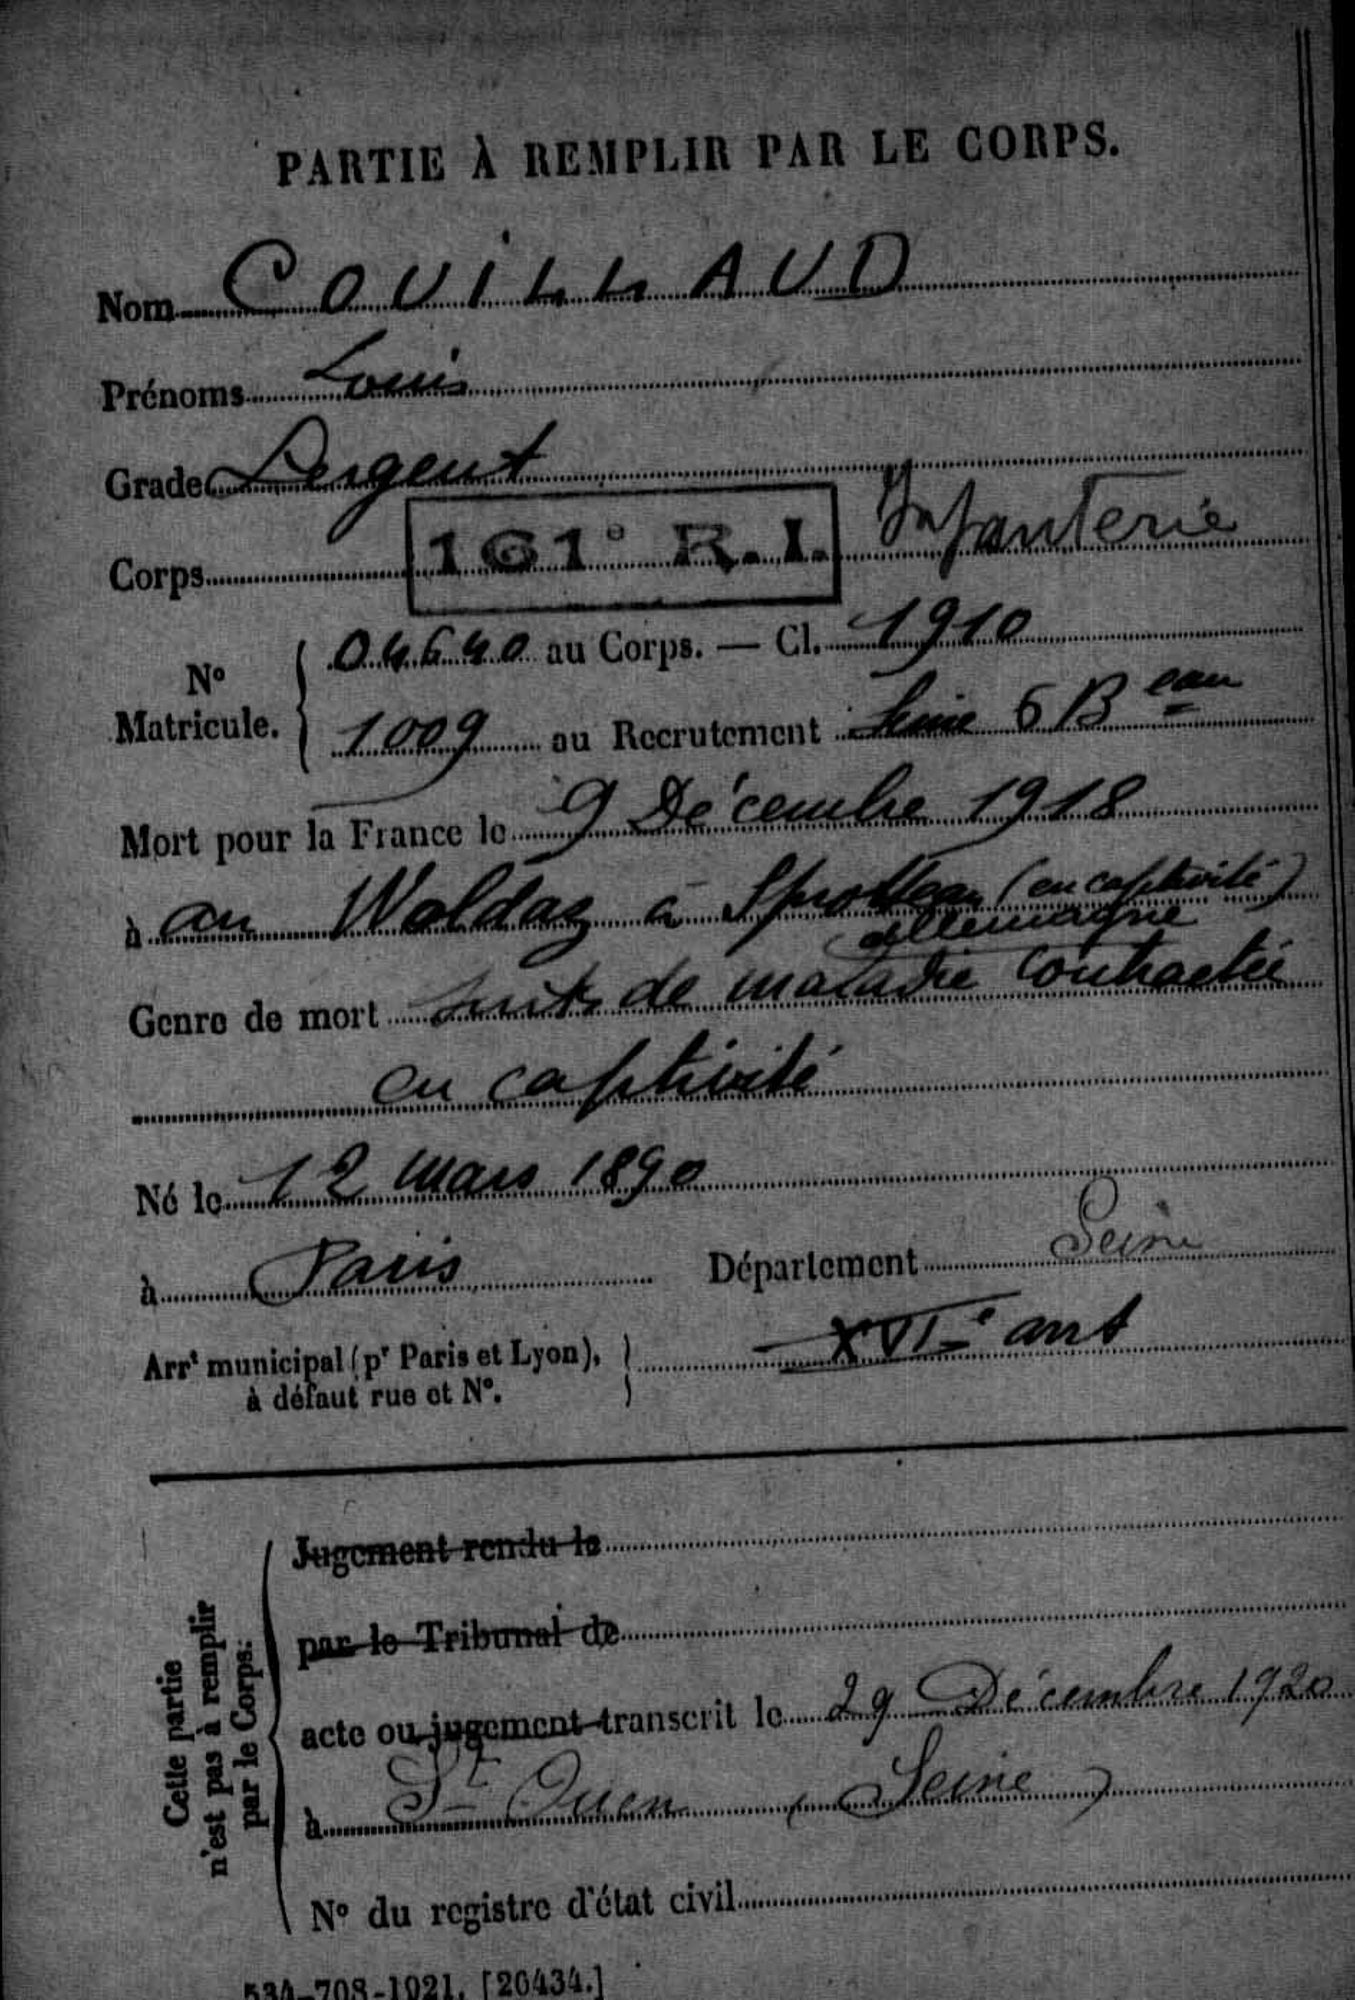 PARTIE À REMPLIR PAR LE CORPS.
Nom COUILLAUD
Prénoms Louis
Grade Sergent
Corps 161e R.I. Infanterie
No Matricule. 04640 au Corps. — Cl. 1910
1009 au Recrutement Seine 6 Beau
Mort pour la France le 9 Décembre 1918
à au Waldag à Sprottau (en captivité)
allemagne
Genre de mort suite de maladie contractée
en captivité
Né le 12 mars 1890
à Paris Département Seine
Arrt municipal (pr Paris et Lyon), XVIe arrt
à défaut rue et No.
Cette partie n'est pas à remplir par le Corps.
Jugement rendu le
par le Tribunal de
acte ou jugement transcrit le 29 Décembre 1920
à St Ouen (Seine)
No du registre d'état civil
534-708-1921. [26434.]